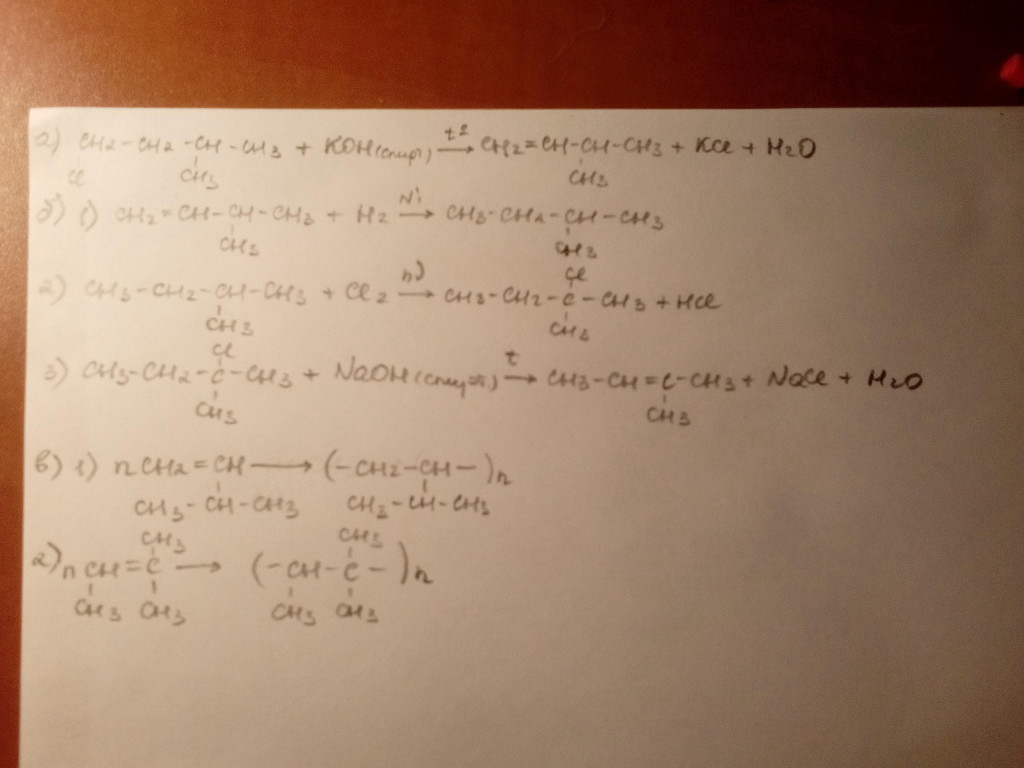 а) CH2-CH2-CH-CH3 + KOH(спирт) t° → CH2=CH-CH-CH3 + KCl + H2O
Cl CH3 CH3
б) 1) CH2=CH-CH-CH3 + H2 Ni → CH3-CH2-CH-CH3
CH3 CH3
Cl
2) CH3-CH2-CH-CH3 + Cl2 hν → CH3-CH2-C-CH3 + HCl
CH3 CH3
Cl
3) CH3-CH2-C-CH3 + NaOH(спирт) t → CH3-CH=C-CH3 + NaCl + H2O
CH3 CH3
в) 1) nCH2=CH → (-CH2-CH-)n
CH3-CH-CH3 CH3-CH-CH3
CH3 CH3
2) nCH=C → (-CH-C-)n
CH3 CH3 CH3 CH3